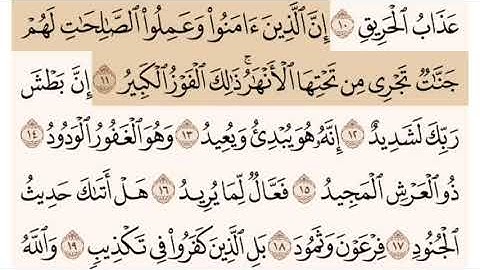 عَذَابُ الْحَرِيقِ ١٠ إِنَّ الَّذِينَ ءَامَنُوا۟ وَعَمِلُوا۟ الصَّـٰلِحَـٰتِ لَهُمْ
جَنَّـٰتٌ تَجْرِى مِن تَحْتِهَا الْأَنْهَـٰرُ ۚ ذَٰلِكَ الْفَوْزُ الْكَبِيرُ ١١ إِنَّ بَطْشَ
رَبِّكَ لَشَدِيدٌ ١٢ إِنَّهُۥ هُوَ يُبْدِئُ وَيُعِيدُ ١٣ وَهُوَ الْغَفُورُ الْوَدُودُ ١٤
ذُو الْعَرْشِ الْمَجِيدُ ١٥ فَعَّالٌ لِّمَا يُرِيدُ ١٦ هَلْ أَتَىٰكَ حَدِيثُ
الْجُنُودِ ١٧ فِرْعَوْنَ وَثَمُودَ ١٨ بَلِ الَّذِينَ كَفَرُوا۟ فِى تَكْذِيبٍ ١٩ وَاللَّهُ